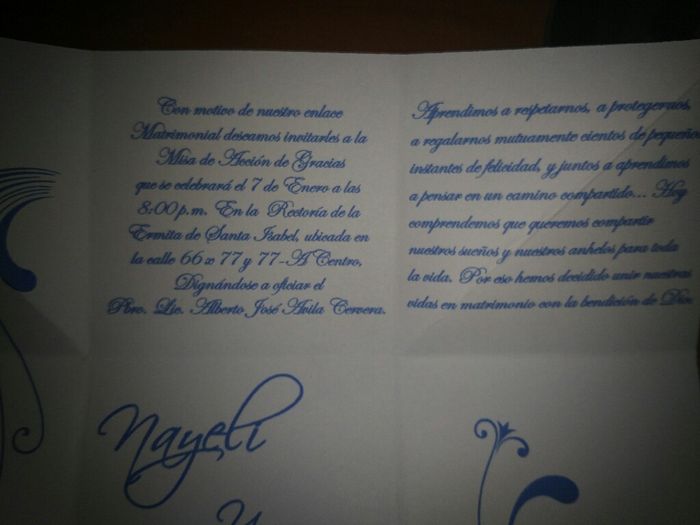 Con motivo de nuestro enlace
Matrimonial deseamos invitarles a la
Misa de Acción de Gracias
que se celebrará el 7 de Enero a las
8:00 p.m. En la Rectoría de la
Ermita de Santa Isabel, ubicada en
la calle 66 x 77 y 77-A Centro,
Dignándose a oficiar el
Pbro. Lic. Alberto José Avila Cervera.
Aprendimos a respetarnos, a protegernos,
a regalarnos mutuamente cientos de pequeños
instantes de felicidad, y juntos a aprendimos
a pensar en un camino compartido... Hoy
comprendemos que queremos compartir
nuestros sueños y nuestros anhelos para toda
la vida. Por eso hemos decidido unir nuestras
vidas en matrimonio con la bendición de Dios.
Nayeli